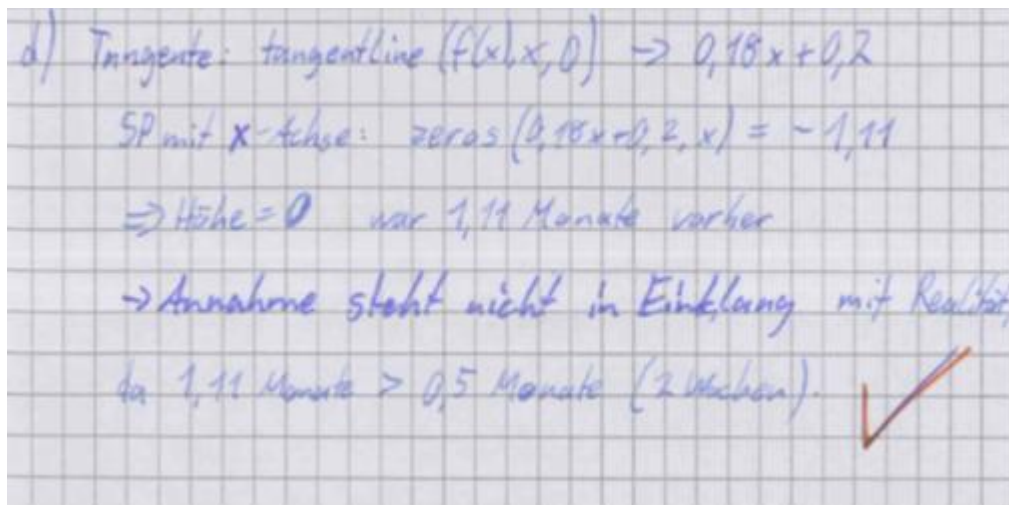 d) Tangente: tangentline (f(x),x,0) → 0,18x+0,2
SP mit x-Achse: zeros (0,18x+0,2,x) = -1,11
⇒ Höhe = 0 war 1,11 Monate vorher
→ Annahme steht nicht in Einklang mit Realität,
da 1,11 Monate > 0,5 Monate (2 Wochen).